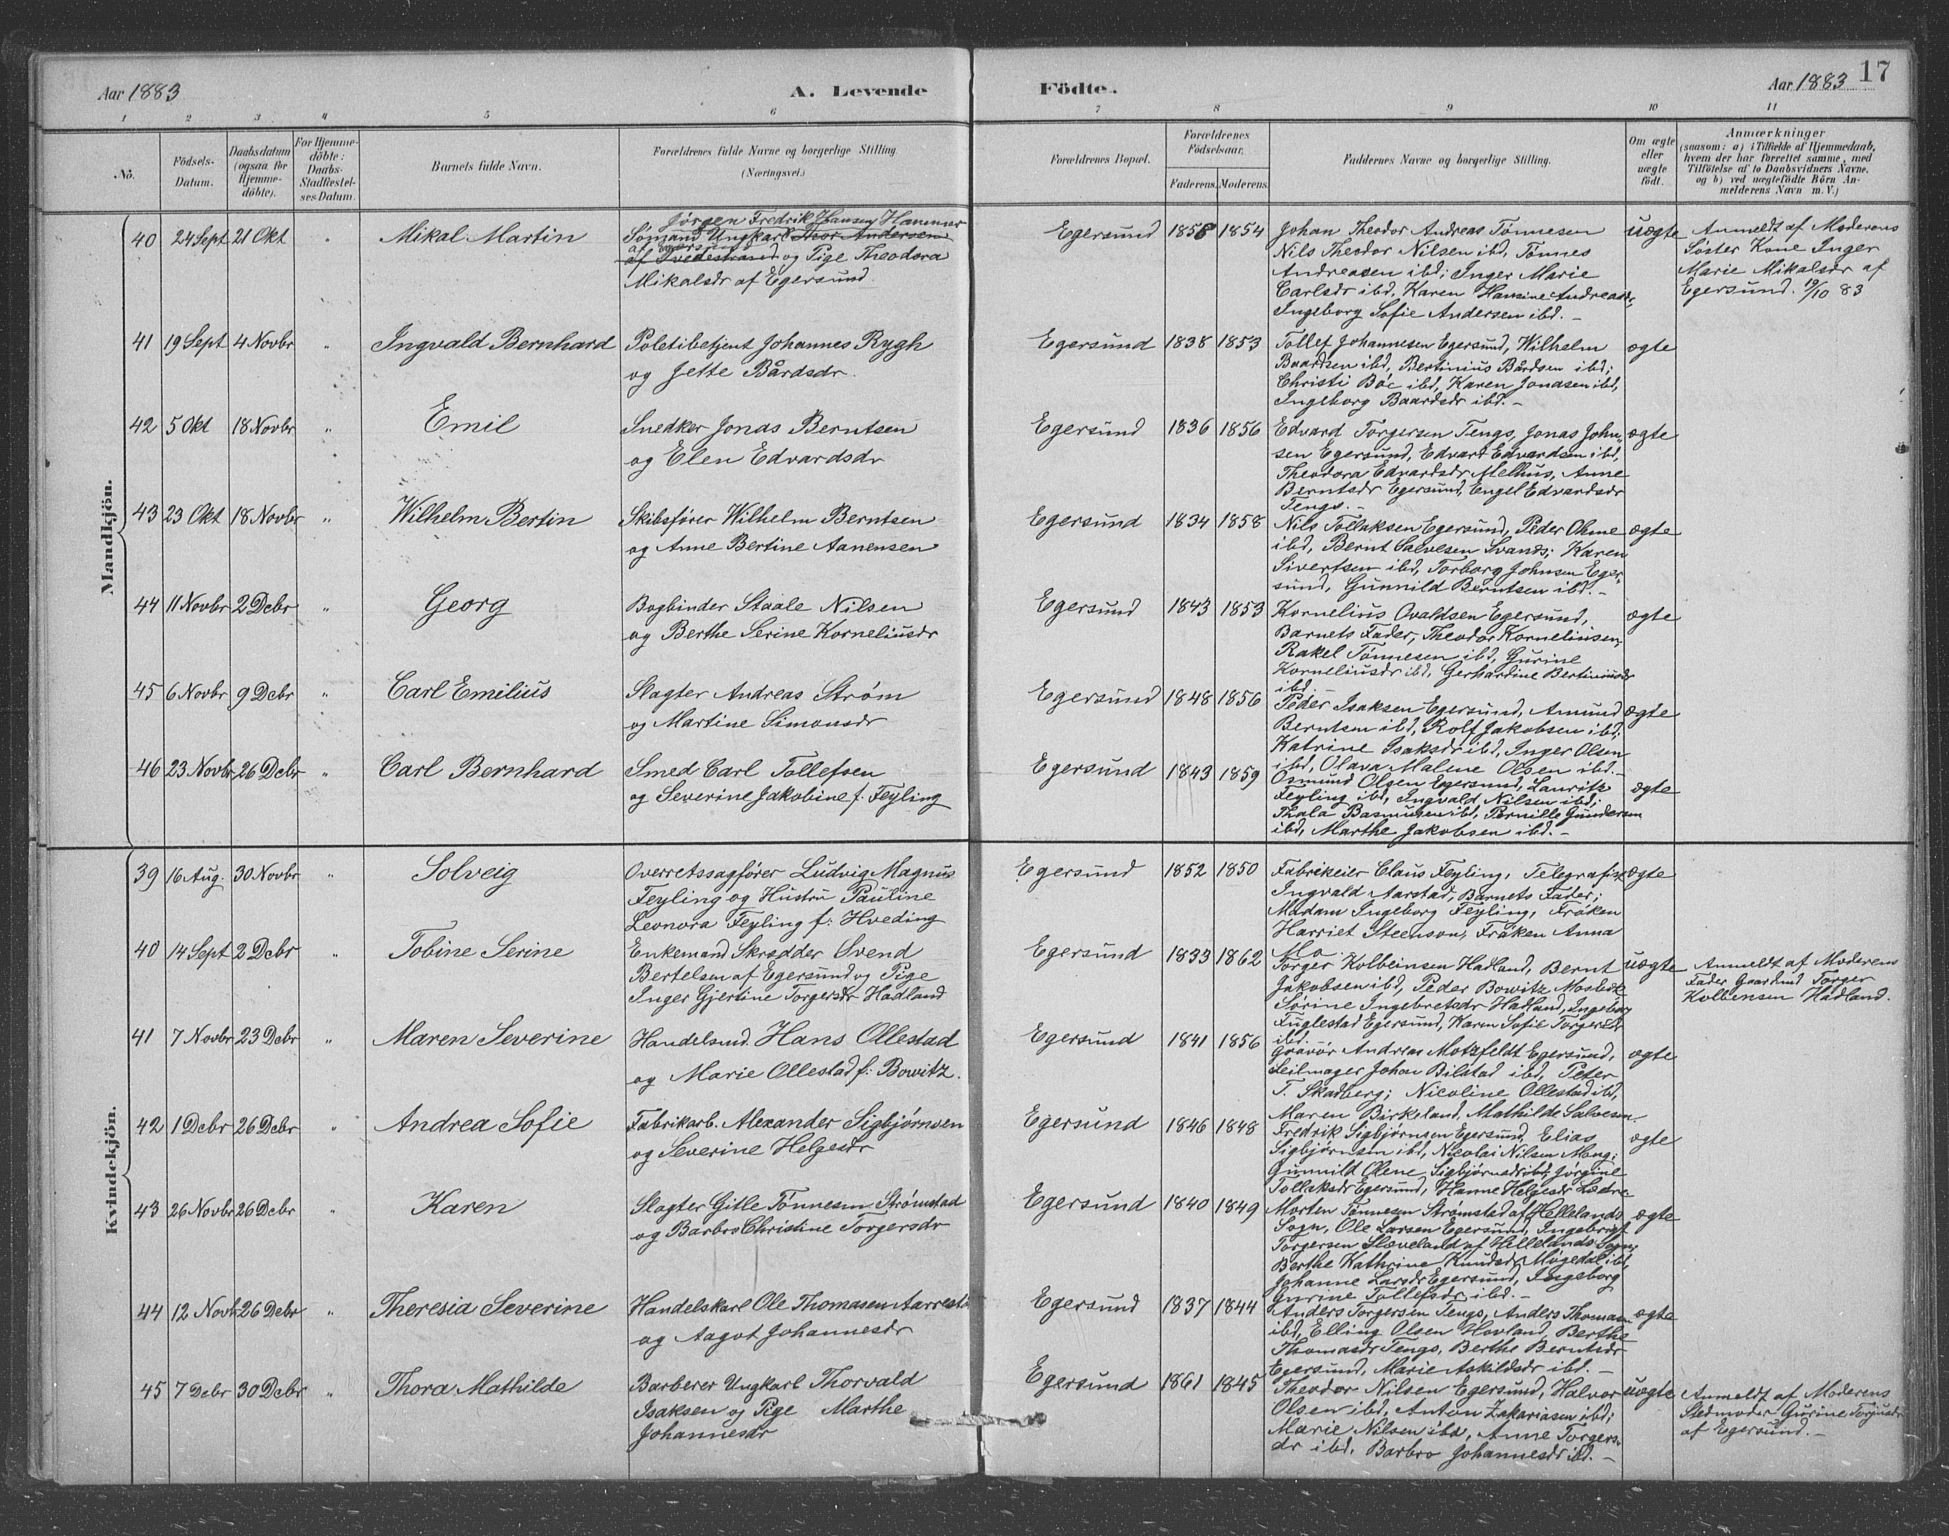 17
Aar 1883
A. Levende
Födte.
Aar 1883
1 2 3 4 5 6 7 8 9 10 11
No.
Födsels-
Datum.
Daabsdatum
(ogsaa for
Hjemme-
döbte).
For Hjemme-
döbte:
Daabs-
Stadfæstel-
ses Datum.
Barnets fulde Navn.
Forældrenes fulde Navne og borgerlige Stilling
(Næringsvei.)
Forældrenes Bopæl.
Forældrenes
Födselsaar.
Faderens. Moderens.
Faddernes Navne og borgerlige Stilling.
Om ægte
eller
uægte
födt.
Anmærkninger
(saasom: a) i Tilfælde af Hjemmedaab,
hvem der har forrettet samme, med
Tilföielse af to Daabsvidners Navne.
og b) ved uægtefödte Börn An-
melderens Navn m. V.)
Mandkjön.
40 24 Sept 21 Okt " Mikal Martin
Jørgen Fredrik Hansen Hammer
Sømand Ungkarl Thor Andersen
af Tvedestrand og Pige Theodora
Mikalsdr af Egersund
Egersund 1858 1854
Johan Theodor Andreas Tønnesen
Nils Theodor Nilsen ibd, Tønnes
Andreasen ibd; Inger Marie
Carlsdr ibd, Karen Hansine Andreasdr,
Ingeborg Sofie Andersen ibd. –
uægte
Anmeldt af Moderens
Søster Kone Inger
Marie Mikalsdr af
Egersund. 19/10 83
41 19 Sept 4 Novbr " Ingvald Bernhard
Poletibetjent Johannes Rygh
og Jette Bårdsdr.
Egersund 1838 1853
Tollef Johannesen Egersund, Wilhelm
Baardsen ibd, Bertinius Bårdsen ibd;
Christi Bøe ibd, Karen Jonassen ibd,
Ingeborg Baardsdr ibd. –
ægte
42 5 Okt 18 Novbr " Emil
Snedker Jonas Berntsen
og Elen Edvardsdr
Egersund 1836 1856
Edvard Torgersen Tengs, Jonas John-
sen Egersund, Edvart Edvardsen ibd,
Theodora Edvardsdr Melhus, Anne
Berntsdr Egersund, Engel Edvardsdr
Tengs. –
ægte
43 23 Okt 18 Novbr " Wilhelm Bertin
Skibsfører Wilhelm Berntsen
og Anne Bertine Aanensen
Egersund 1834 1858
Nils Tollaksen Egersund, Peder Ohme
ibd, Bernt Salvesen Svanes; Karen
Sivertsen ibd, Torborg Johnsen Eger-
sund, Gunnild Berntsen ibd. –
ægte
44 11 Novbr 2 Debr " Georg
Bogbinder Staale Nilsen
og Berthe Serine Korneliusdr
Egersund 1843 1853
Kornelius Ovaldsen Egersund,
Barnets Fader, Theodor Korneliusen,
Rakel Tønnesen ibd, Gurine
Korneliusdr ibd, Gerhardine Bertiniusdr
ibd. –
ægte
45 6 Novbr 9 Debr " Carl Emilius
Slagter Andreas Strøm
og Martine Simonsdr
Egersund 1848 1856
Peder Isaksen Egersund, Amund
Berntsen ibd, Rolf Jakobsen ibd,
Katrine Isaksdr ibd, Inger Olsen
ibd, Olava Malene Olsen ibd. –
ægte
46 23 Novbr 26 Debr " Carl Bernhard
Smed Carl Tollefsen
og Severine Jakobine f. Feyling
Egersund 1843 1859
Osmund Olsen Egersund, Lauritz
Feyling ibd, Ingvald Nilsen ibd;
Thala Rasmussen ibd, Pernille Gundersen
ibd, Marthe Jakobsen ibd. –
ægte
Kvindekjön.
39 16 Aug. 30 Novbr " Solveig
Overretssagfører Ludvig Magnus
Feyling og Hustru Pauline
Leonora Feyling f: Hveding
Egersund 1852 1850
Fabrikeier Claus Feyling, Telegrafist
Ingvald Aarstad, Barnets Fader;
Madam Ingeborg Feyling, Frøken
Harriet Steenson, Frøken Anna
Mo
ægte
40 14 Sept 2 Debr " Tobine Serine
Enkemand Skrædder Svend
Bertelsen af Egersund og Pige
Inger Gjertine Torgersdr Hadland
Egersund 1833 1862
Torger Kolbeinsen Hadland, Bernt
Jakobsen ibd, Peder Bowitz Mosbek
Sørine Ingebretsdr Hadland, Ingeborg
Fuglestad Egersund, Karen Sofie Torgersdr
ibd.
uægte
Anmeldt af Moderens
Fader Gaardmd Torger
Kolbensen Hadland.
41 7 Novbr 23 Debr " Maren Severine
Handelsmd. Hans Ollestad
og Marie Ollestad f: Bowitz.
Egersund 1841 1856
Gravør Andreas Motzfeldt Egersund,
Seilmager Johan Bilstad ibd, Peter
T. Skadberg; Nicoline Ollestad ibd,
Maren Birkeland, Mathilde Salvesen
ægte
42 1 Debr 26 Debr " Andrea Sofie
Fabrikarb. Alexander Sigbjørnsen
og Severine Helgesdr
Egersund 1846 1848
Fredrik Sigbjørnsen Egersund, Elias
Sigbjørnsen ibd, Nicolai Nilsen Mong;
Gunnild Olene Sigbjørnsdr ibd, Jørgine
Tollaksdr Egersund, Hanne Helgesdr Lædre
ægte
43 26 Novbr 26 Debr " Karen
Slagter Gitle Tønnesen Strømstad
og Barbro Christine Torgersdr
Egersund 1840 1849
Morten Tønnesen Strømstad af Hellelands
Sogn, Ole Larsen Egersund, Ingebregt
Torgersen Slæveland af Hellelands Sogn,
Berthe Kathrine Knudsdr Møgedal ibd,
Johanne Larsdr Egersund, Ingeborg
Gurine Tollefsdr ibd. –
ægte
44 12 Novbr 26 Debr " Theresia Severine
Handelskarl Ole Thomasen Aarrestad
og Aagot Johannesdr
Egersund 1837 1844
Anders Torgersen Tengs, Anders Thomasen
ibd, Elling Olsen Hovland, Berthe
Thomasdr Tengs, Berthe Berntsdr
Egersund, Marie Askildsdr ibd. –
ægte
45 7 Debr 30 Debr " Thora Mathilde
Barberer Ungkarl Thorvald
Isaksen og Pige Marthe
Johannesdr
Egersund 1861 1845
Theodor Nilsen Egersund, Halvor
Olsen ibd, Anton Zakariasen ibd;
Marie Nilsen ibd, Anne Torgers-
dr ibd, Barbro Johannesdr ibd. –
uægte
Anmeldt af Moderens
Stedmoder Gurine Torjusdr
af Egersund. –